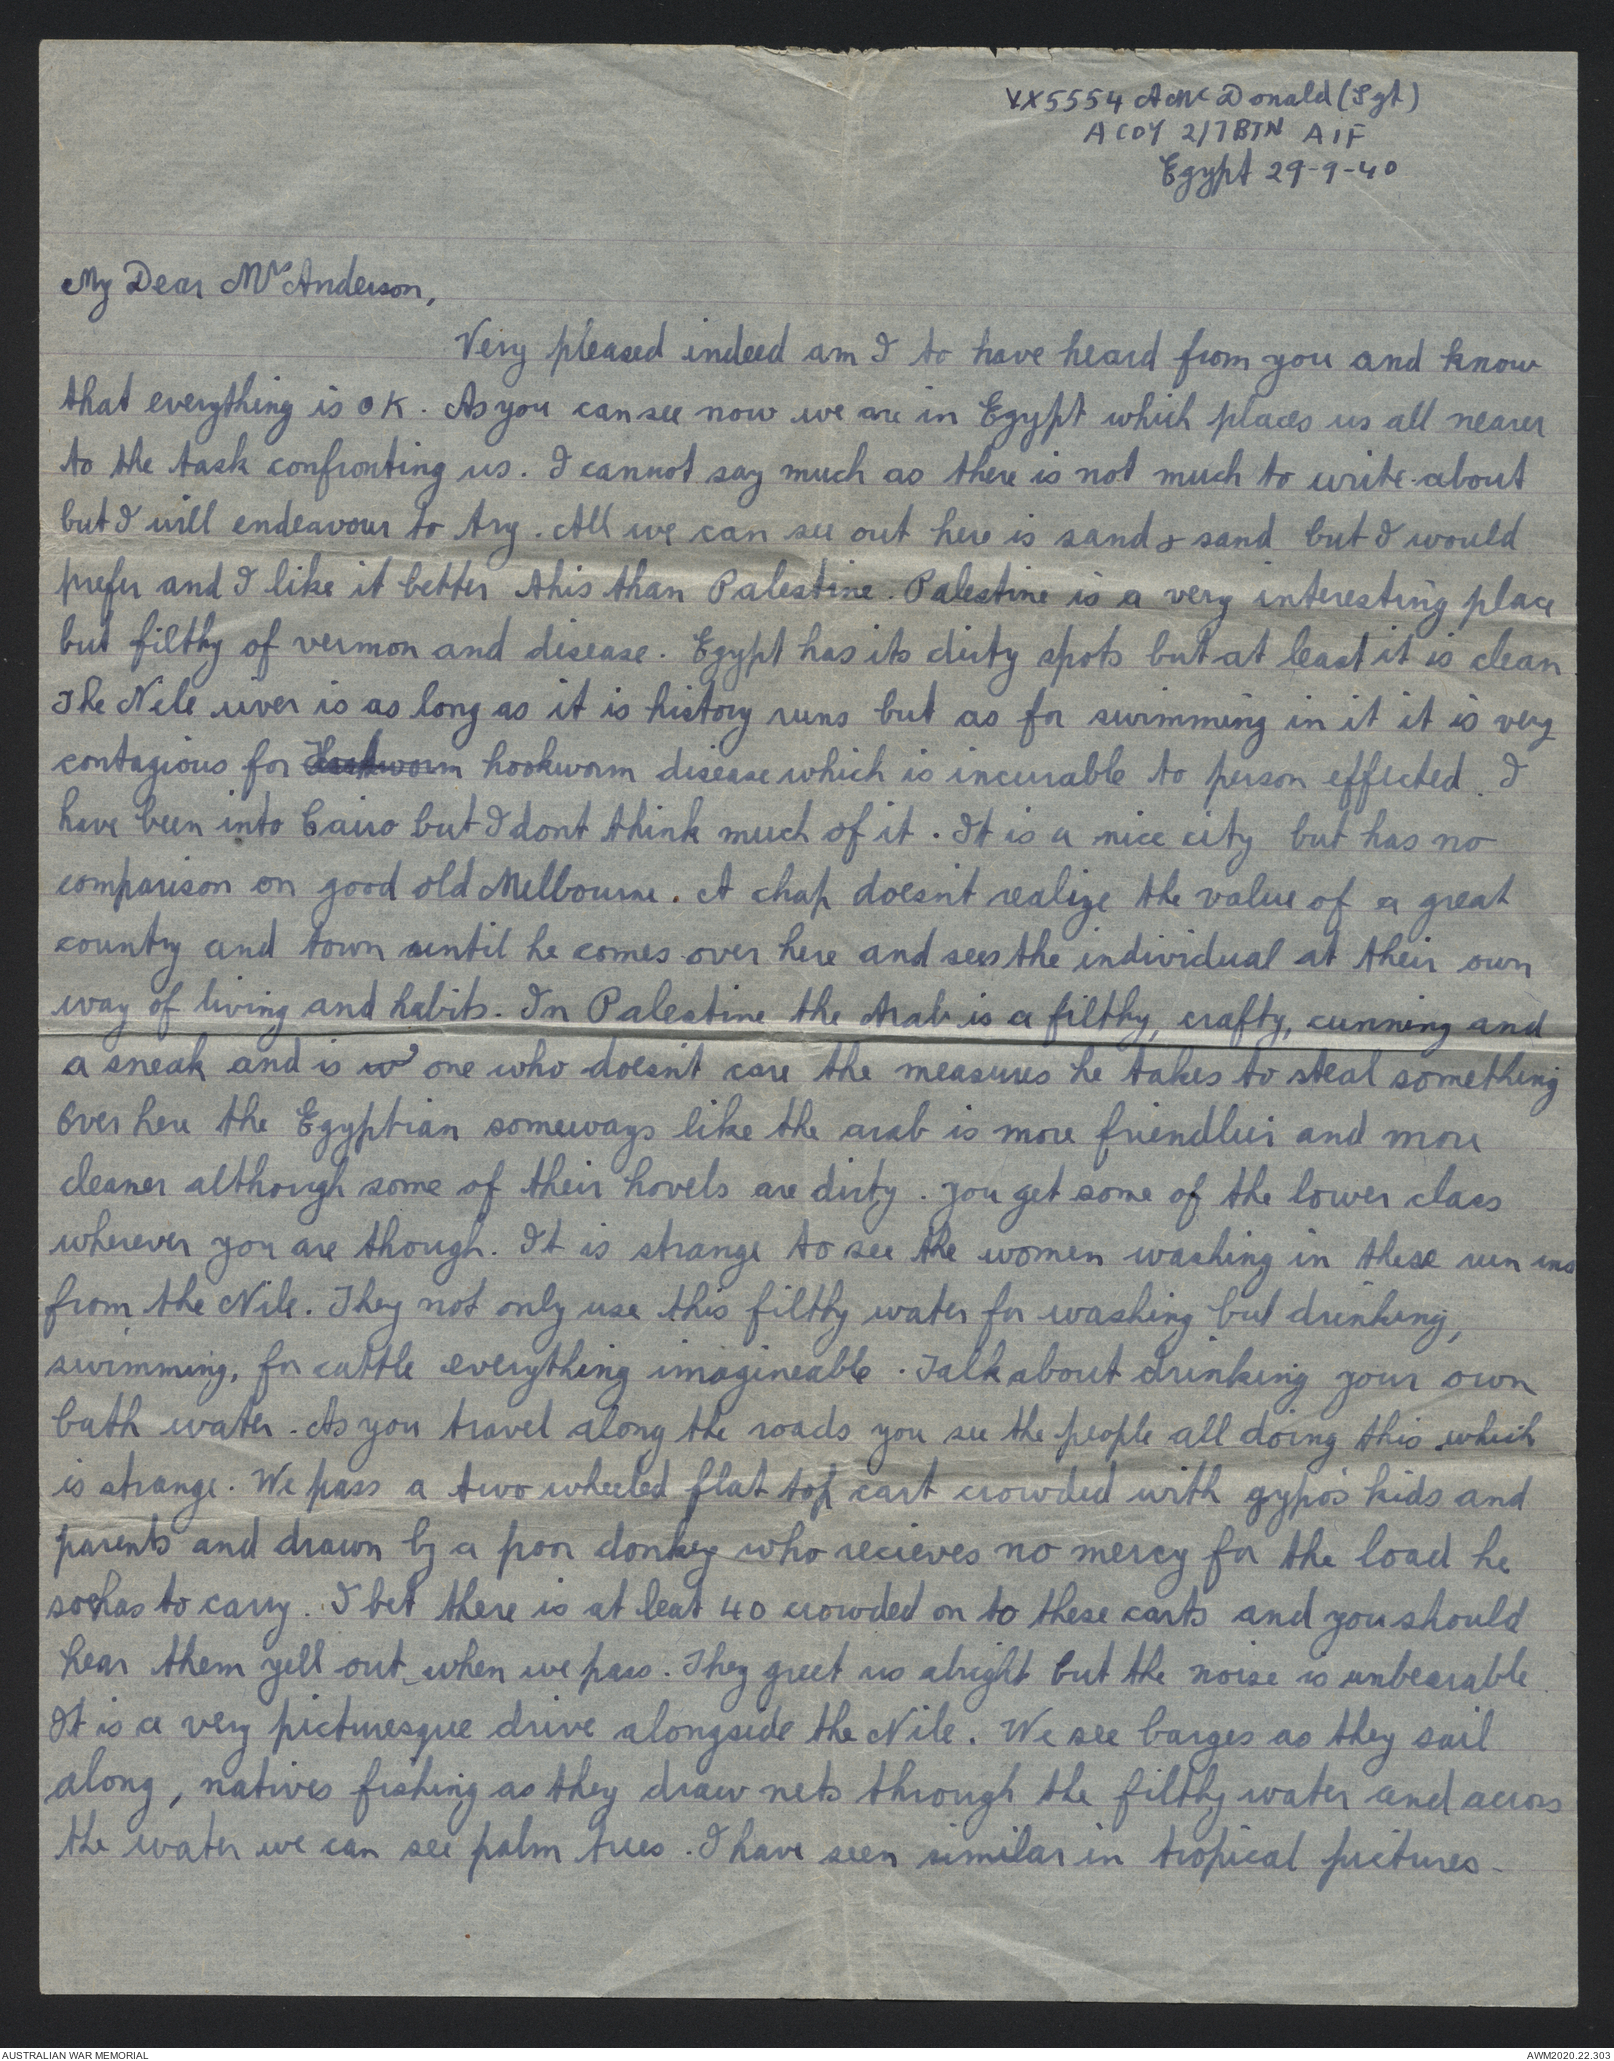 VX5554 A Mc Donald (Sgt)
A COY 2/7 BTN AIF
Egypt 29-9-40
My Dear Mrs Anderson,
Very pleased indeed am I to have heard from you and know
that everything is OK. As you can see now we are in Egypt which places us all nearer
to the task confronting us. I cannot say much as there is not much to write about
but I will endeavour to try. All we can see out here is sand & sand but I would
prefer and I like it better this than Palestine. Palestine is a very interesting place
but filthy of vermon and disease. Egypt has its dirty spots but at least it is clean
The Nile river is as long as it is history runs but as for swimming in it it is very
contagious for hookworm disease which is incurable to person effected. I
have been into Cairo but I dont think much of it. It is a nice city but has no
comparison on good old Melbourne. A chap doesn't realize the value of a great
country and town until he comes over here and sees the individual at their own
way of living and habits. In Palestine the Arab is a filthy, crafty, cunning and
a sneak and is one who doesn't care the measures he takes to steal something
Over here the Egyptian someways like the arab is more friendlier and more
cleaner although some of their hovels are dirty. You get some of the lower class
wherever you are though. It is strange to see the women washing in these run ins
from the Nile. They not only use this filthy water for washing but drinking,
swimming, for cattle everything imagineable. Talk about drinking your own
bath water. As you travel along the roads you see the people all doing this which
is strange. We pass a two wheeled flat top cart crowded with gypo's kids and
parents and drawn by a poor donkey who recieves no mercy for the load he
has to carry. I bet there is at leat 40 crowded on to these carts and you should
hear them yell out when we pass. They greet us alright but the noise is unbearable
It is a very picturesque drive alongside the Nile. We see barges as they sail
along, natives fishing as they draw nets through the filthy water and across
the water we can see palm trees. I have seen similar in tropical pictures.
AUSTRALIAN WAR MEMORIAL
AWM2020.22.303